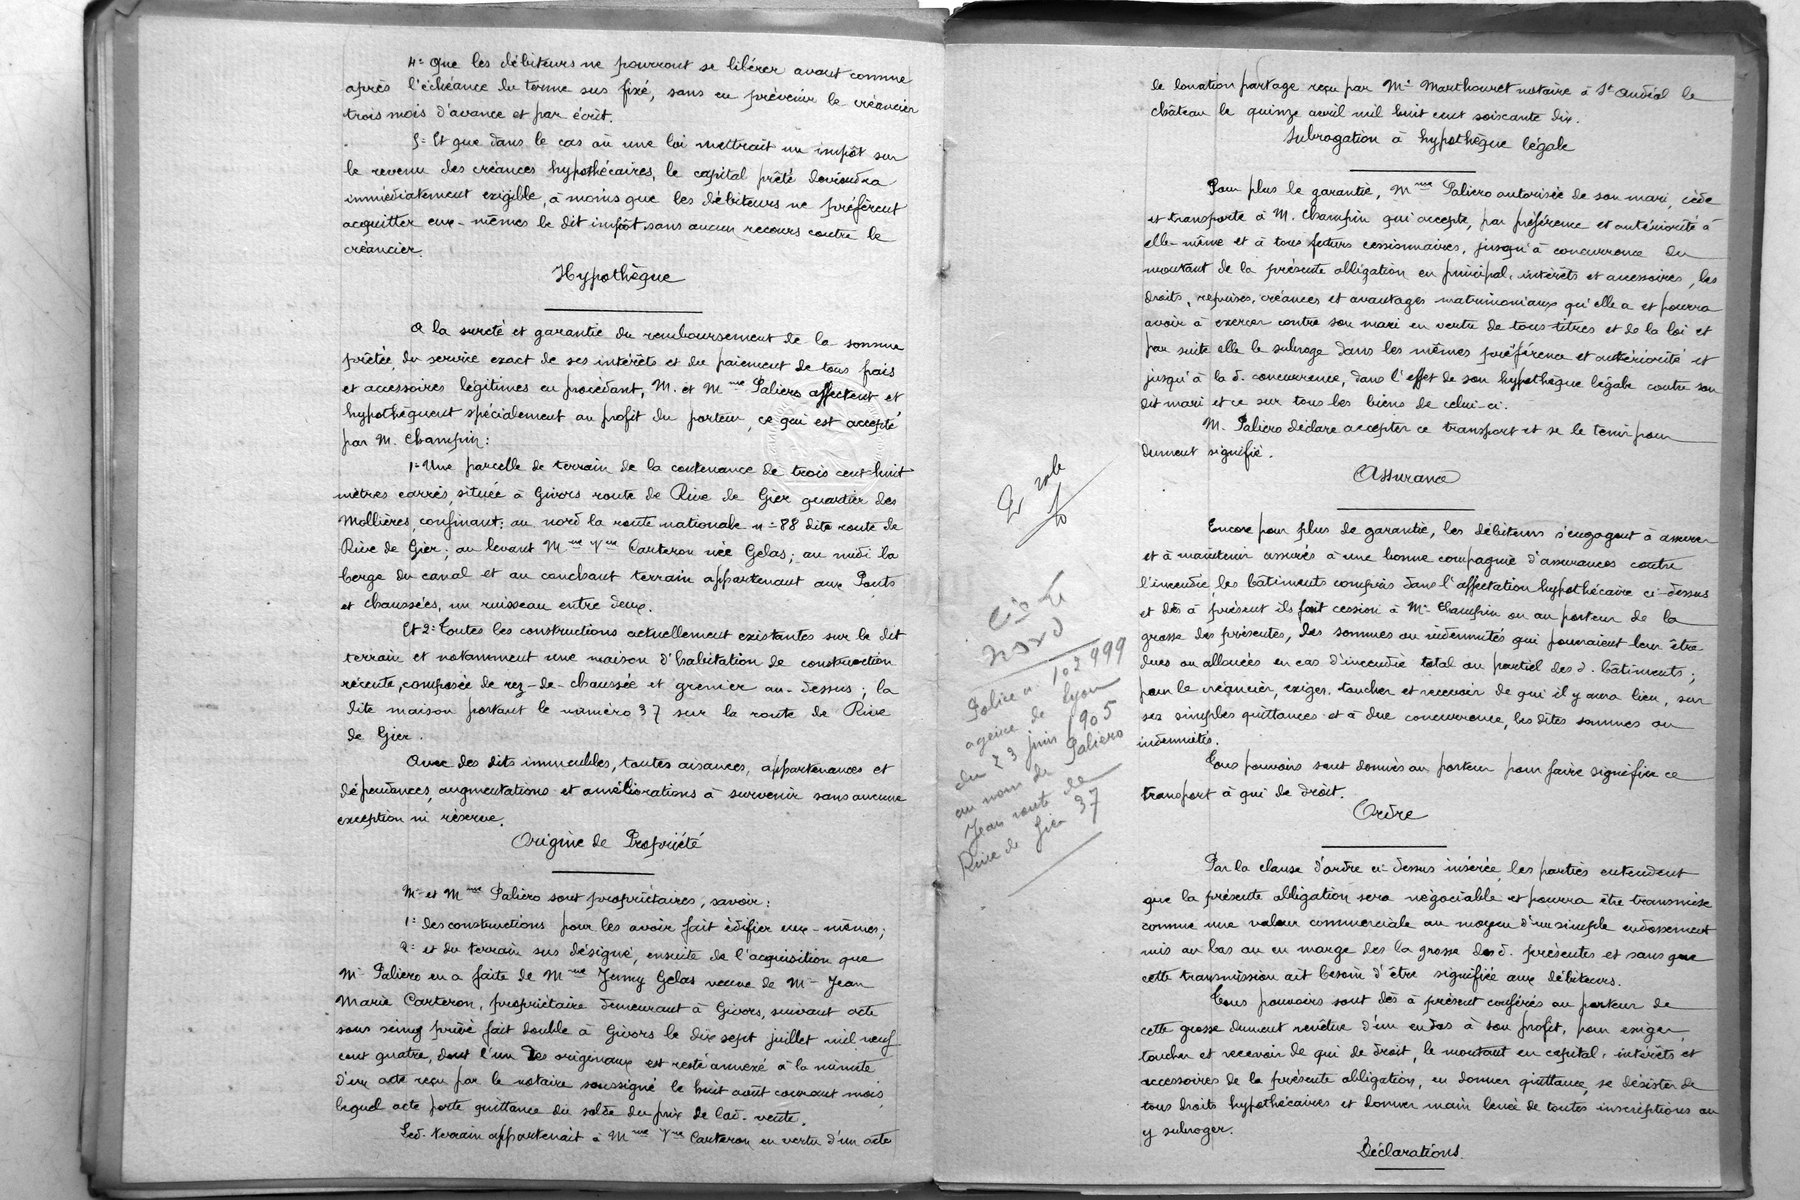 4° Que les débiteurs ne pourront se libérer avant comme
après l'échéance du terme sus fixé, sans en prévenir le créancier
trois mois d'avance et par écrit.
5° Et que dans le cas où une loi mettrait un impôt sur
le revenu des créances hypothécaires, le capital prêté deviendra
immédiatement exigible, à moins que les débiteurs ne préfèrent
acquitter eux-mêmes le dit impôt sans aucun recours contre le
créancier.
Hypothèque
A la sureté et garantie du remboursement de la somme
prêtée, du service exact de ses intérêts et du paiement de tous frais
et accessoires légitimes en procédant, M. et Mme Paliero affectent et
hypothèquent spécialement au profit du porteur, ce qui est accepté
par M. Champin:
1° Une parcelle de terrain de la contenance de trois cent huit
mètres carrés, située à Givors route de Rive de Gier quartier des
Mollières, confinant: au nord la route nationale n° 88 dite route de
Rive de Gier; au levant Mme Vve Carteron née Gelas; au midi la
berge du canal et au couchant terrain appartenant aux Ponts
et chaussées, un ruisseau entre deux.
Et 2° Toutes les constructions actuellement existantes sur le dit
terrain et notamment une maison d'habitation de construction
récente, composée de rez-de-chaussée et grenier au-dessus; la
dite maison portant le numéro 37 sur la route de Rive
de Gier.
Avec des dits immeubles, toutes aisances, appartenances et
dépendances, augmentations et améliorations à survenir sans aucune
exception ni réserve.
Origine de Propriété
Mr et Mme Paliero sont propriétaires, savoir:
1° des constructions pour les avoir fait édifier eux-mêmes;
2° et du terrain sus désigné, ensuite de l'acquisition que
Mr Paliero en a faite de Mme Jenny Gelas veuve de Mr Jean
Marie Carteron, propriétaire demeurant à Givors, suivant acte
sous seing privé fait double à Givors le dix sept juillet mil neuf
cent quatre, dont l'un des originaux est resté annexé à la minute
d'un acte reçu par le notaire soussigné le huit août courant mois,
lequel acte porte quittance du solde du prix de lad. vente.
Led. terrain appartenait à Mme Vve Carteron en vertu d'un acte
de donation partage reçu par Me Marthouret notaire à St Andéol le
château le quinze avril mil huit cent soixante dix.
Subrogation à hypothèque légale
Pour plus de garantie, Mme Paliero autorisée de son mari, cède
et transporte à M. Champin qui accepte, par préférence et antériorité à
elle-même et à tous futurs cessionnaires, jusqu'à concurrence du
montant de la présente obligation en principal, intérêts et accessoires, les
droits, reprises, créances et avantages matrimoniaux qu'elle a et pourra
avoir à exercer contre son mari en vertu de tous titres et de la loi et
par suite elle le subroge dans les mêmes préférence et antériorité et
jusqu'à la d. concurrence, dans l'effet de son hypothèque légale contre son
dit mari et ce sur tous les biens de celui-ci.
M. Paliero déclare accepter ce transport et se le tenir pour
dument signifié.
Assurance
Encore pour plus de garantie, les débiteurs s'engagent à assurer
et à maintenir assurés à une bonne compagnie d'assurances contre
l'incendie, les bâtiments compris dans l'affectation hypothécaire ci-dessus
et dès à présent ils font cession à Mr Champin ou au porteur de la
grosse des présentes, des sommes ou indemnités qui pourraient leur être
dues ou allouées en cas d'incendie total ou partiel des d. bâtiments;
pour le créancier, exiger, toucher et recevoir de qui il y aura lieu, sur
ses simples quittances et à due concurrence, les dites sommes ou
indemnités.
Tous pouvoirs sont donnés au porteur pour faire signifier ce
transport à qui de droit.
Ordre
Par la clause d'ordre ci-dessus insérée les parties entendent
que la présente obligation sera négociable et pourra être transmise
comme une valeur commerciale au moyen d'un simple endossement
mis au bas ou en marge des la grosse des d. présentes et sans que
cette transmission ait besoin d'être signifiée aux débiteurs.
Tous pouvoirs sont dès à présent conférés au porteur de
cette grosse dument revêtue d'un endos à son profit, pour exiger,
toucher et recevoir de qui de droit, le montant en capital, intérêts et
accessoires de la présente obligation, en donner quittance, se désister de
tous droits hypothécaires et donner main levée de toutes inscriptions ou
y subroger.
Déclarations.
Cie
Nord
Police n° 102999
agence de Lyon
du 23 juin 1905
au nom de Paliero
Jean route de
Rive de Gier 37